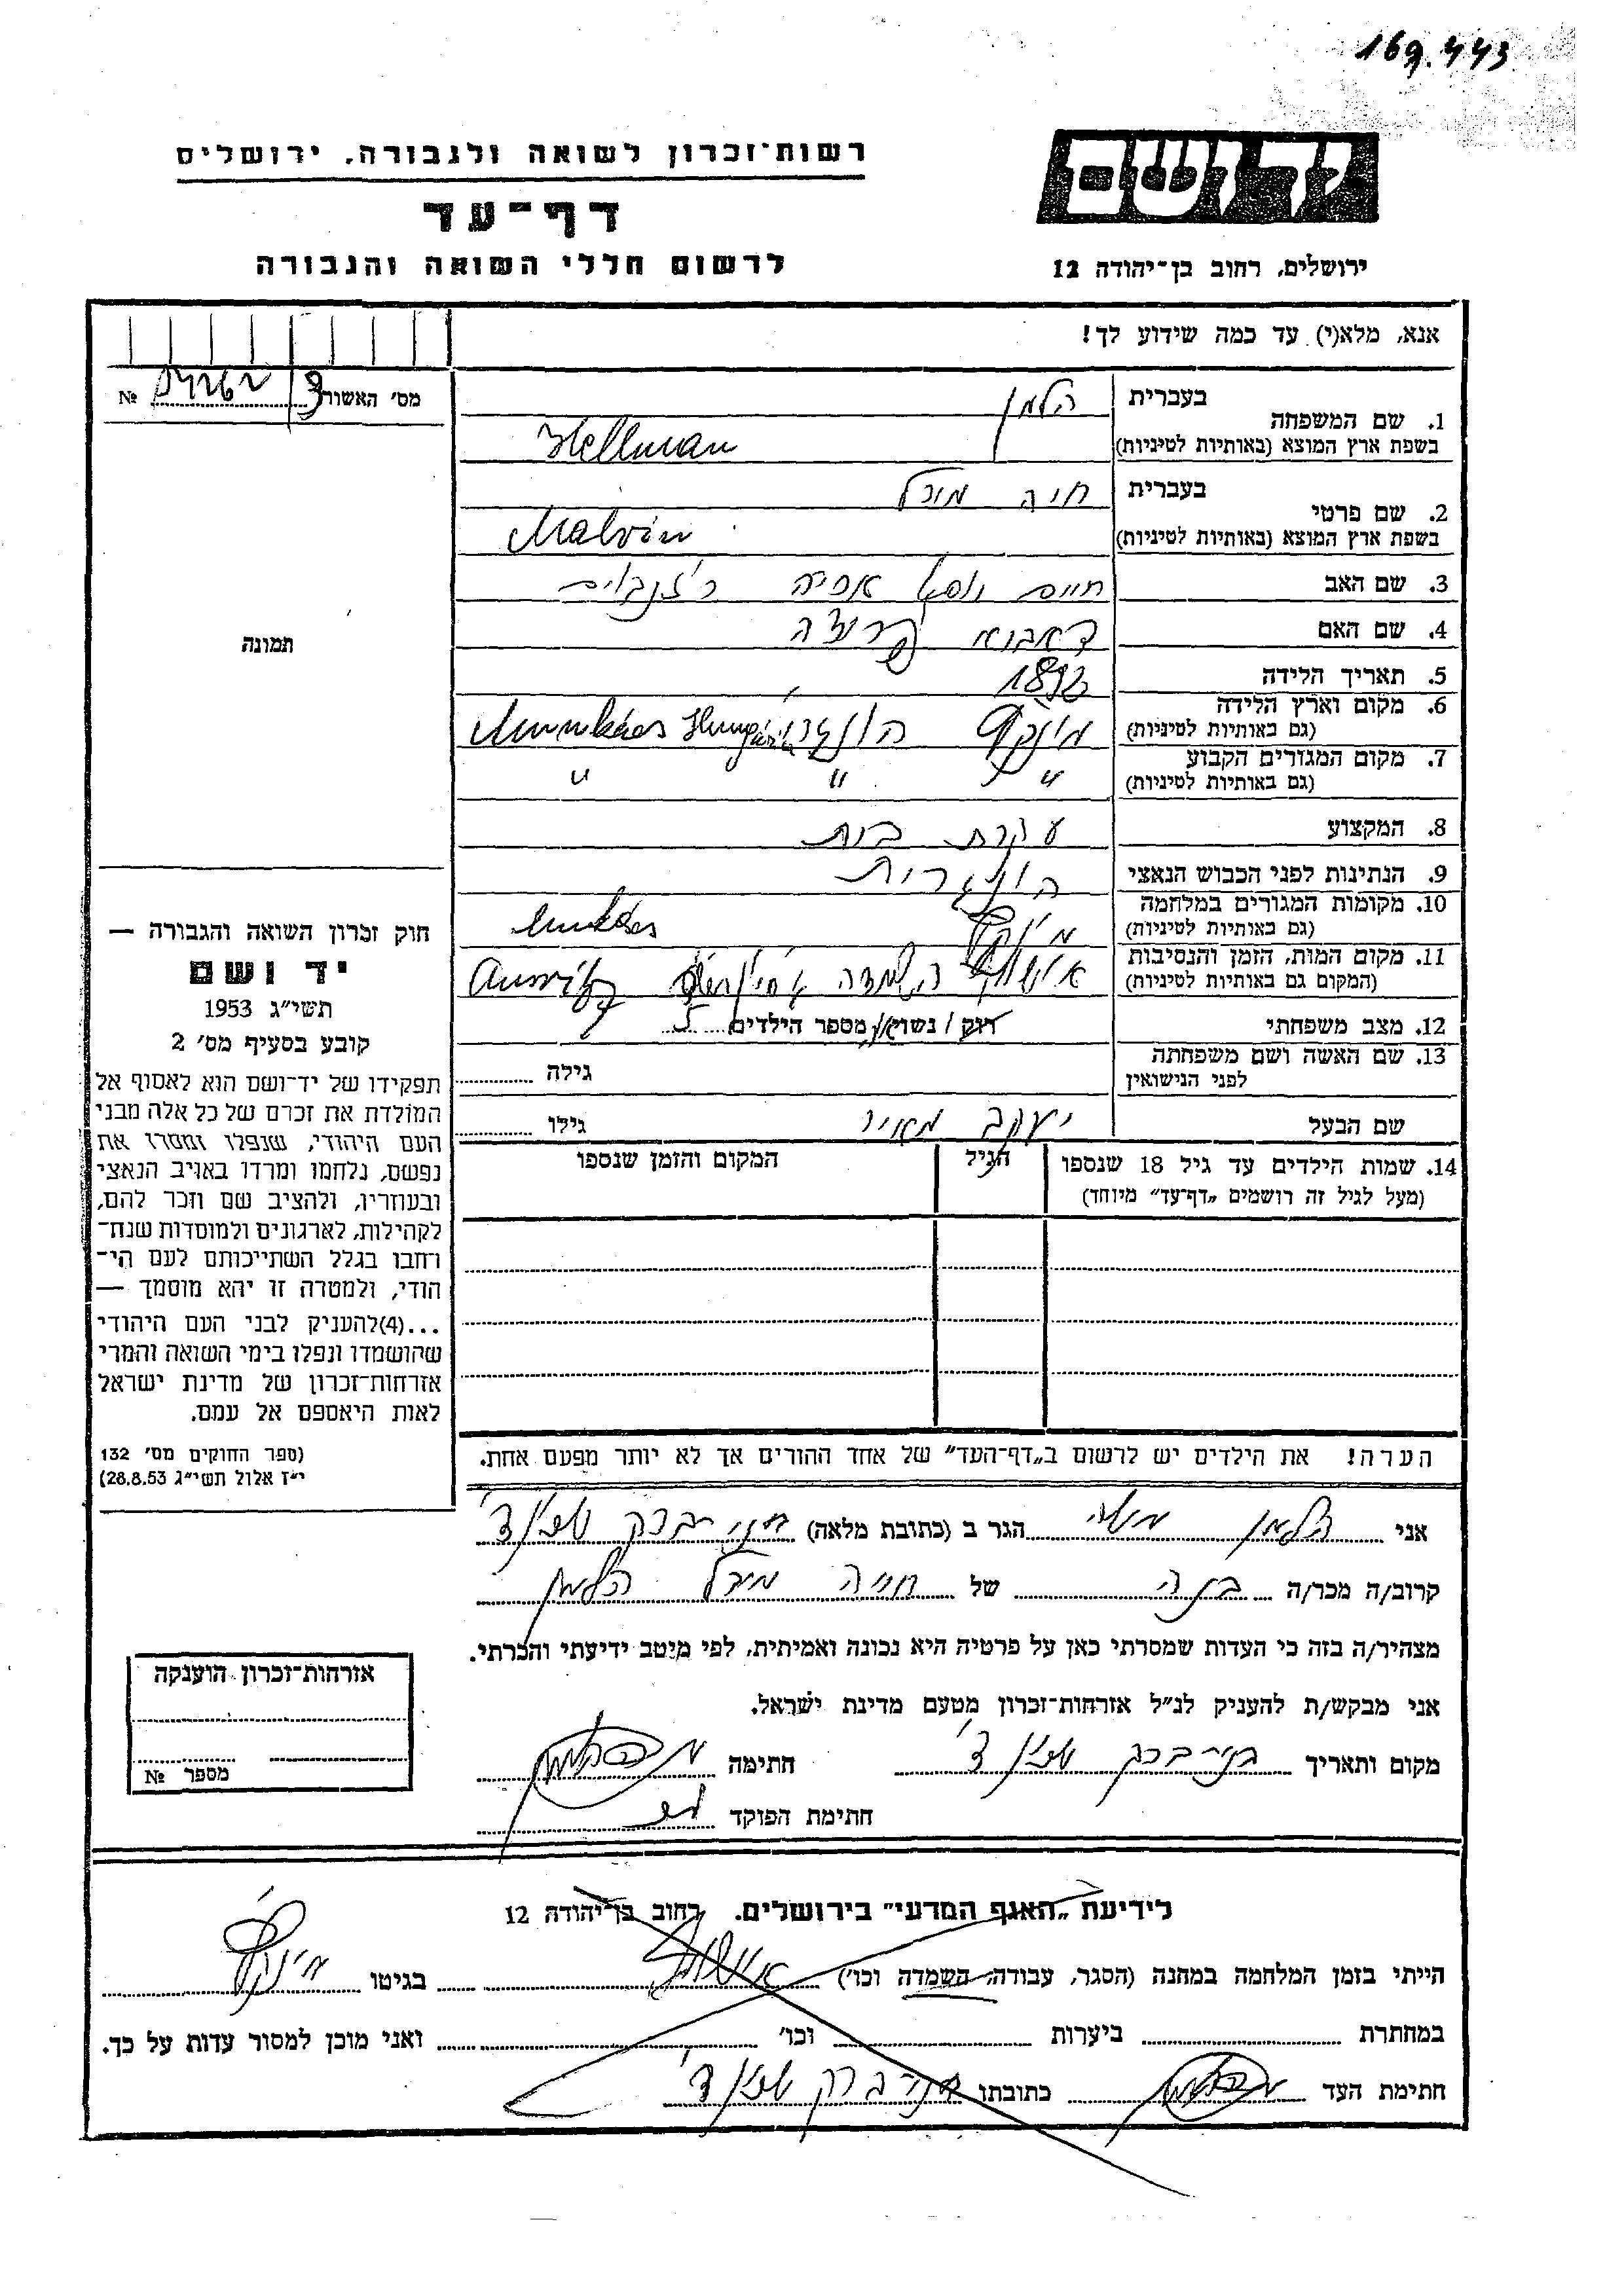 169.443
יד ושם
ירושלים, רחוב בן־יהודה 12
רשות־זכרון לשואה ולגבורה, ירושלים
דף־עד
לרשום חללי השואה והגבורה
אנא, מלא(י) עד כמה שידוע לך!
מס' האשור № 
תמונה
1. שם המשפחה בעברית הלמן
בשפת ארץ המוצא (באותיות לטיניות) Hellman
2. שם פרטי בעברית חיה מירל
בשפת ארץ המוצא (באותיות לטיניות) Malvin
3. שם האב חיים יוסף אריה
4. שם האם
5. תאריך הלידה 1892
6. מקום וארץ הלידה
(גם באותיות לטיניות) מונקץ הונגריה Munkács
7. מקום המגורים הקבוע
(גם באותיות לטיניות) " " "
8. המקצוע עקרת בית
9. הנתינות לפני הכבוש הנאצי הונגרית
10. מקומות המגורים במלחמה
(גם באותיות לטיניות) Munkács
11. מקום המות, הזמן והנסיבות
(המקום גם באותיות לטיניות) השמדה
12. מצב משפחתי רוק / נשוי/אה מספר הילדים 5
13. שם האשה ושם משפחתה
לפני הנישואין גילה
שם הבעל יעקב מאיר גילו
14. שמות הילדים עד גיל 18 שנספו
(מעל לגיל זה רושמים „דף־עד" מיוחד)
הגיל
המקום והזמן שנספו
הערה! את הילדים יש לרשום ב„דף־העד" של אחד ההורים אך לא יותר מפעם אחת.
חוק זכרון השואה והגבורה —
יד ושם
תשי"ג 1953
קובע בסעיף מס' 2
תפקידו של יד־ושם הוא לאסוף אל
המולדת את זכרם של כל אלה מבני
העם היהודי, שנפלו ומסרו את
נפשם, נלחמו ומרדו באויב הנאצי
ובעוזריו, ולהציב שם וזכר להם,
לקהילות, לארגונים ולמוסדות שנח־
רחבו בגלל השתייכותם לעם הי־
הודי, ולמטרה זו יהא מוסמך —
...(4)להעניק לבני העם היהודי
שהושמדו ונפלו בימי השואה והמרי
אזרחות־זכרון של מדינת ישראל
לאות היאספם אל עמם.
(ספר החוקים מס' 132
י"ז אלול תשי"ג 28.8.53)
אני הלמן משה הגר ב (כתובת מלאה) בני ברק
קרוב/ה מכר/ה בנה של חיה מירל הלמן
מצהיר/ה בזה כי העדות שמסרתי כאן על פרטיה היא נכונה ואמיתית, לפי מיטב ידיעתי והכרתי.
אני מבקש/ת להעניק לנ"ל אזרחות־זכרון מטעם מדינת ישראל.
מקום ותאריך בני ברק חתימה
חתימת הפוקד
אזרחות־זכרון הוענקה
מספר №
לידיעת „האגף המדעי" בירושלים. רחוב בן־יהודה 12
הייתי בזמן המלחמה במחנה (הסגר, עבודה, השמדה וכו') בגיטו מונקץ
במחתרת ביערות וכו' ואני מוכן למסור עדות על כך.
חתימת העד כתובתו בני ברק